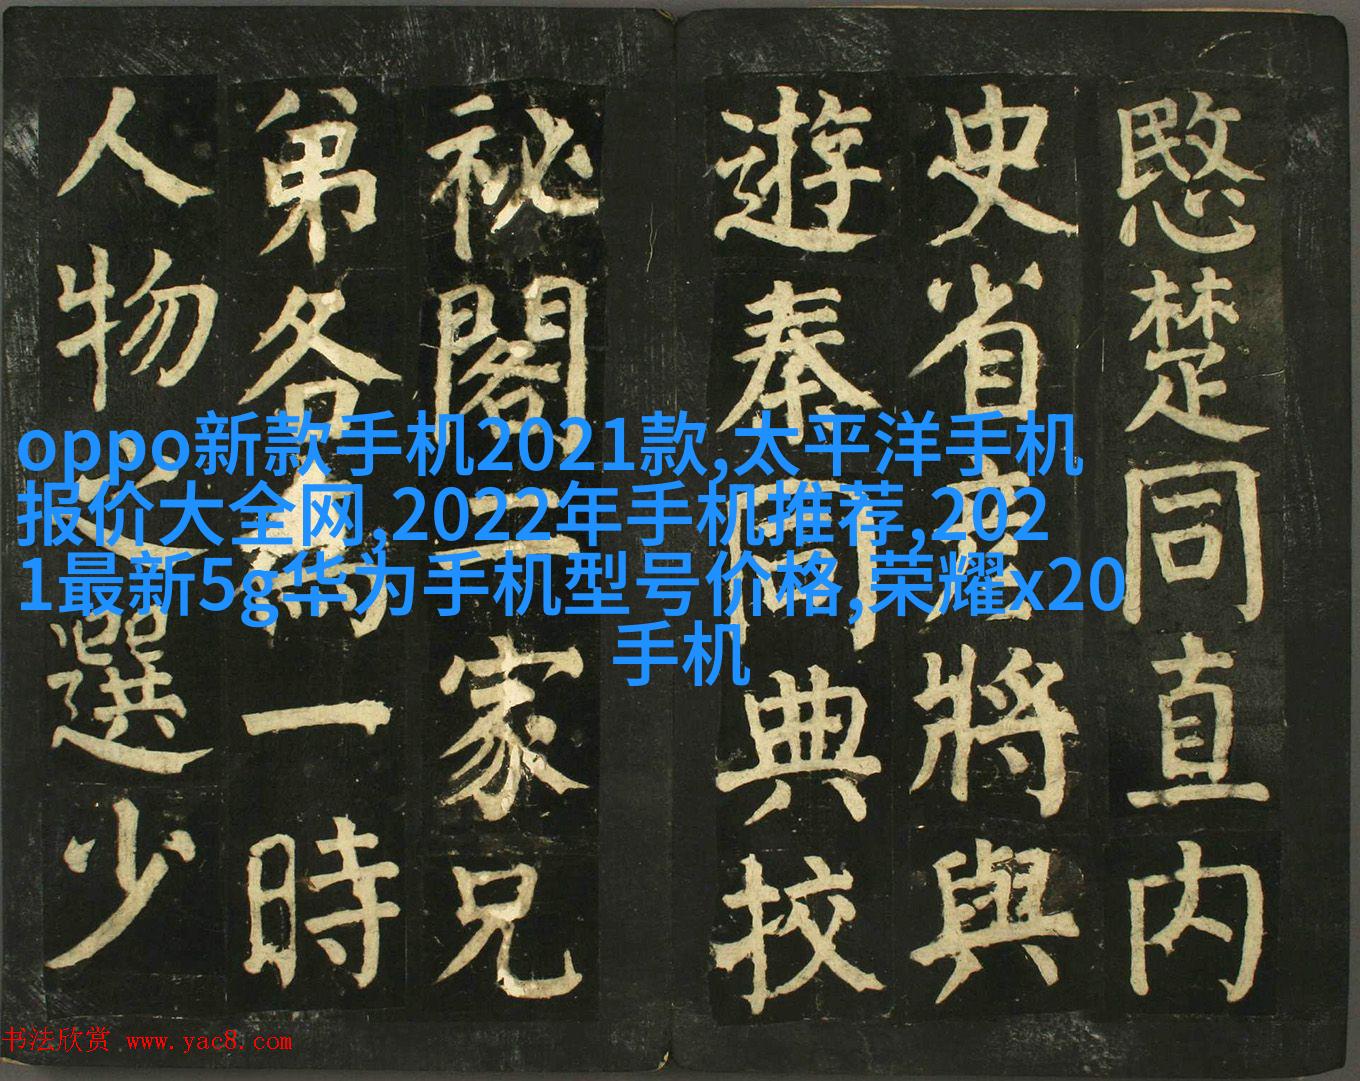 愍楚同直内
史省彦將與
遊秦同典校
祕閣二家兄
弟各為一時
人物之選少
oppo新款手机2021款,太平洋手机
报价大全网,2022年手机推荐,202
1最新5g华为手机型号价格,荣耀x20
手机
书法欣赏 www.yac8.com